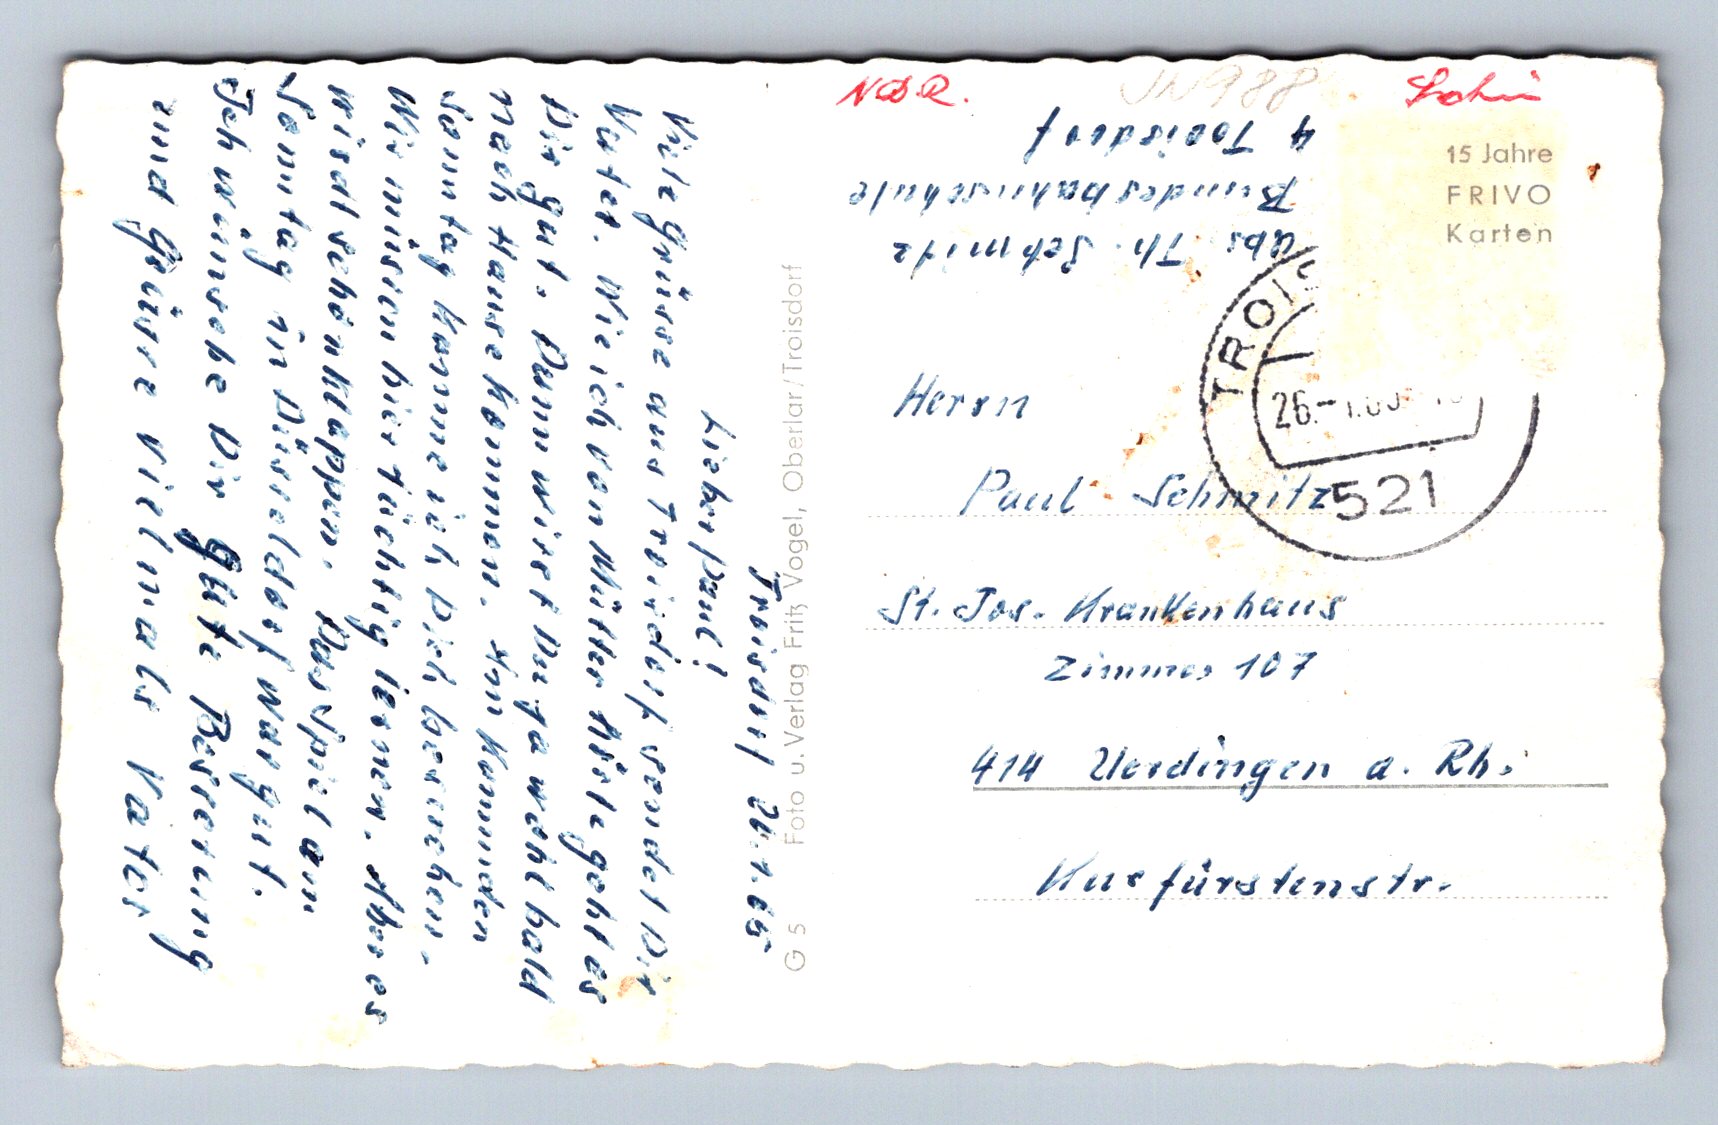 Troisdorf 26.1.65
Lieber Paul!
Viele Grüsse aus Troisdorf sendet Dir
Vater. Wie ich von Mutter höre geht es
Dir gut. Dann wirst Du ja wohl bald
nach Hause kommen. Am kommenden
Sonntag komme ich Dich besuchen.
Wir müssen hier tüchtig lernen. Aber es
wird schon klappen. Das Spiel am
Sonntag in Düsseldorf war gut.
Ich wünsche Dir gute Besserung
und Grüsse vielmals Vater
G 5 Foto u. Verlag Fritz Vogel, Oberlar/Troisdorf
NDR.
JN988
15 Jahre
FRIVO
Karten
Abs. Th. Schmitz
Bundesbahnschule
Troisdorf
TROIS
26.-1.65
521
Herrn
Paul Schmitz
St. Jos. Krankenhaus
Zimmer 107
414 Uerdingen a. Rh.
Kurfürstenstr.